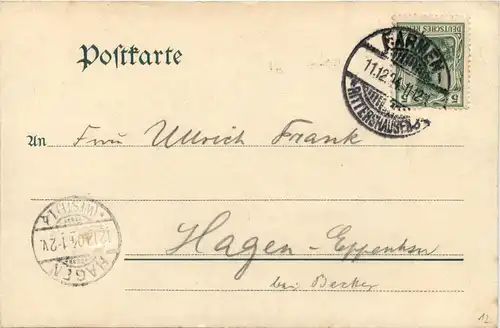 Postkarte
BARMEN-
11.12.
RITTERSHAUSEN
DEUTSCHES REICH
5 5
An Frau Ullrich Frank
HAGEN
(WESTF.) 1
Hagen-Eppenhsn
bei Becker
12